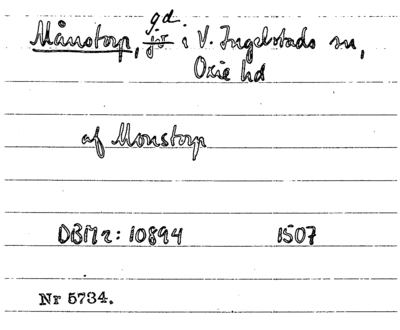 gd
Månstorp, jr i V. Ingelstads sn,
Oxie hd
af Monstorp
DBM 2: 10894 1507
Nr 5734.